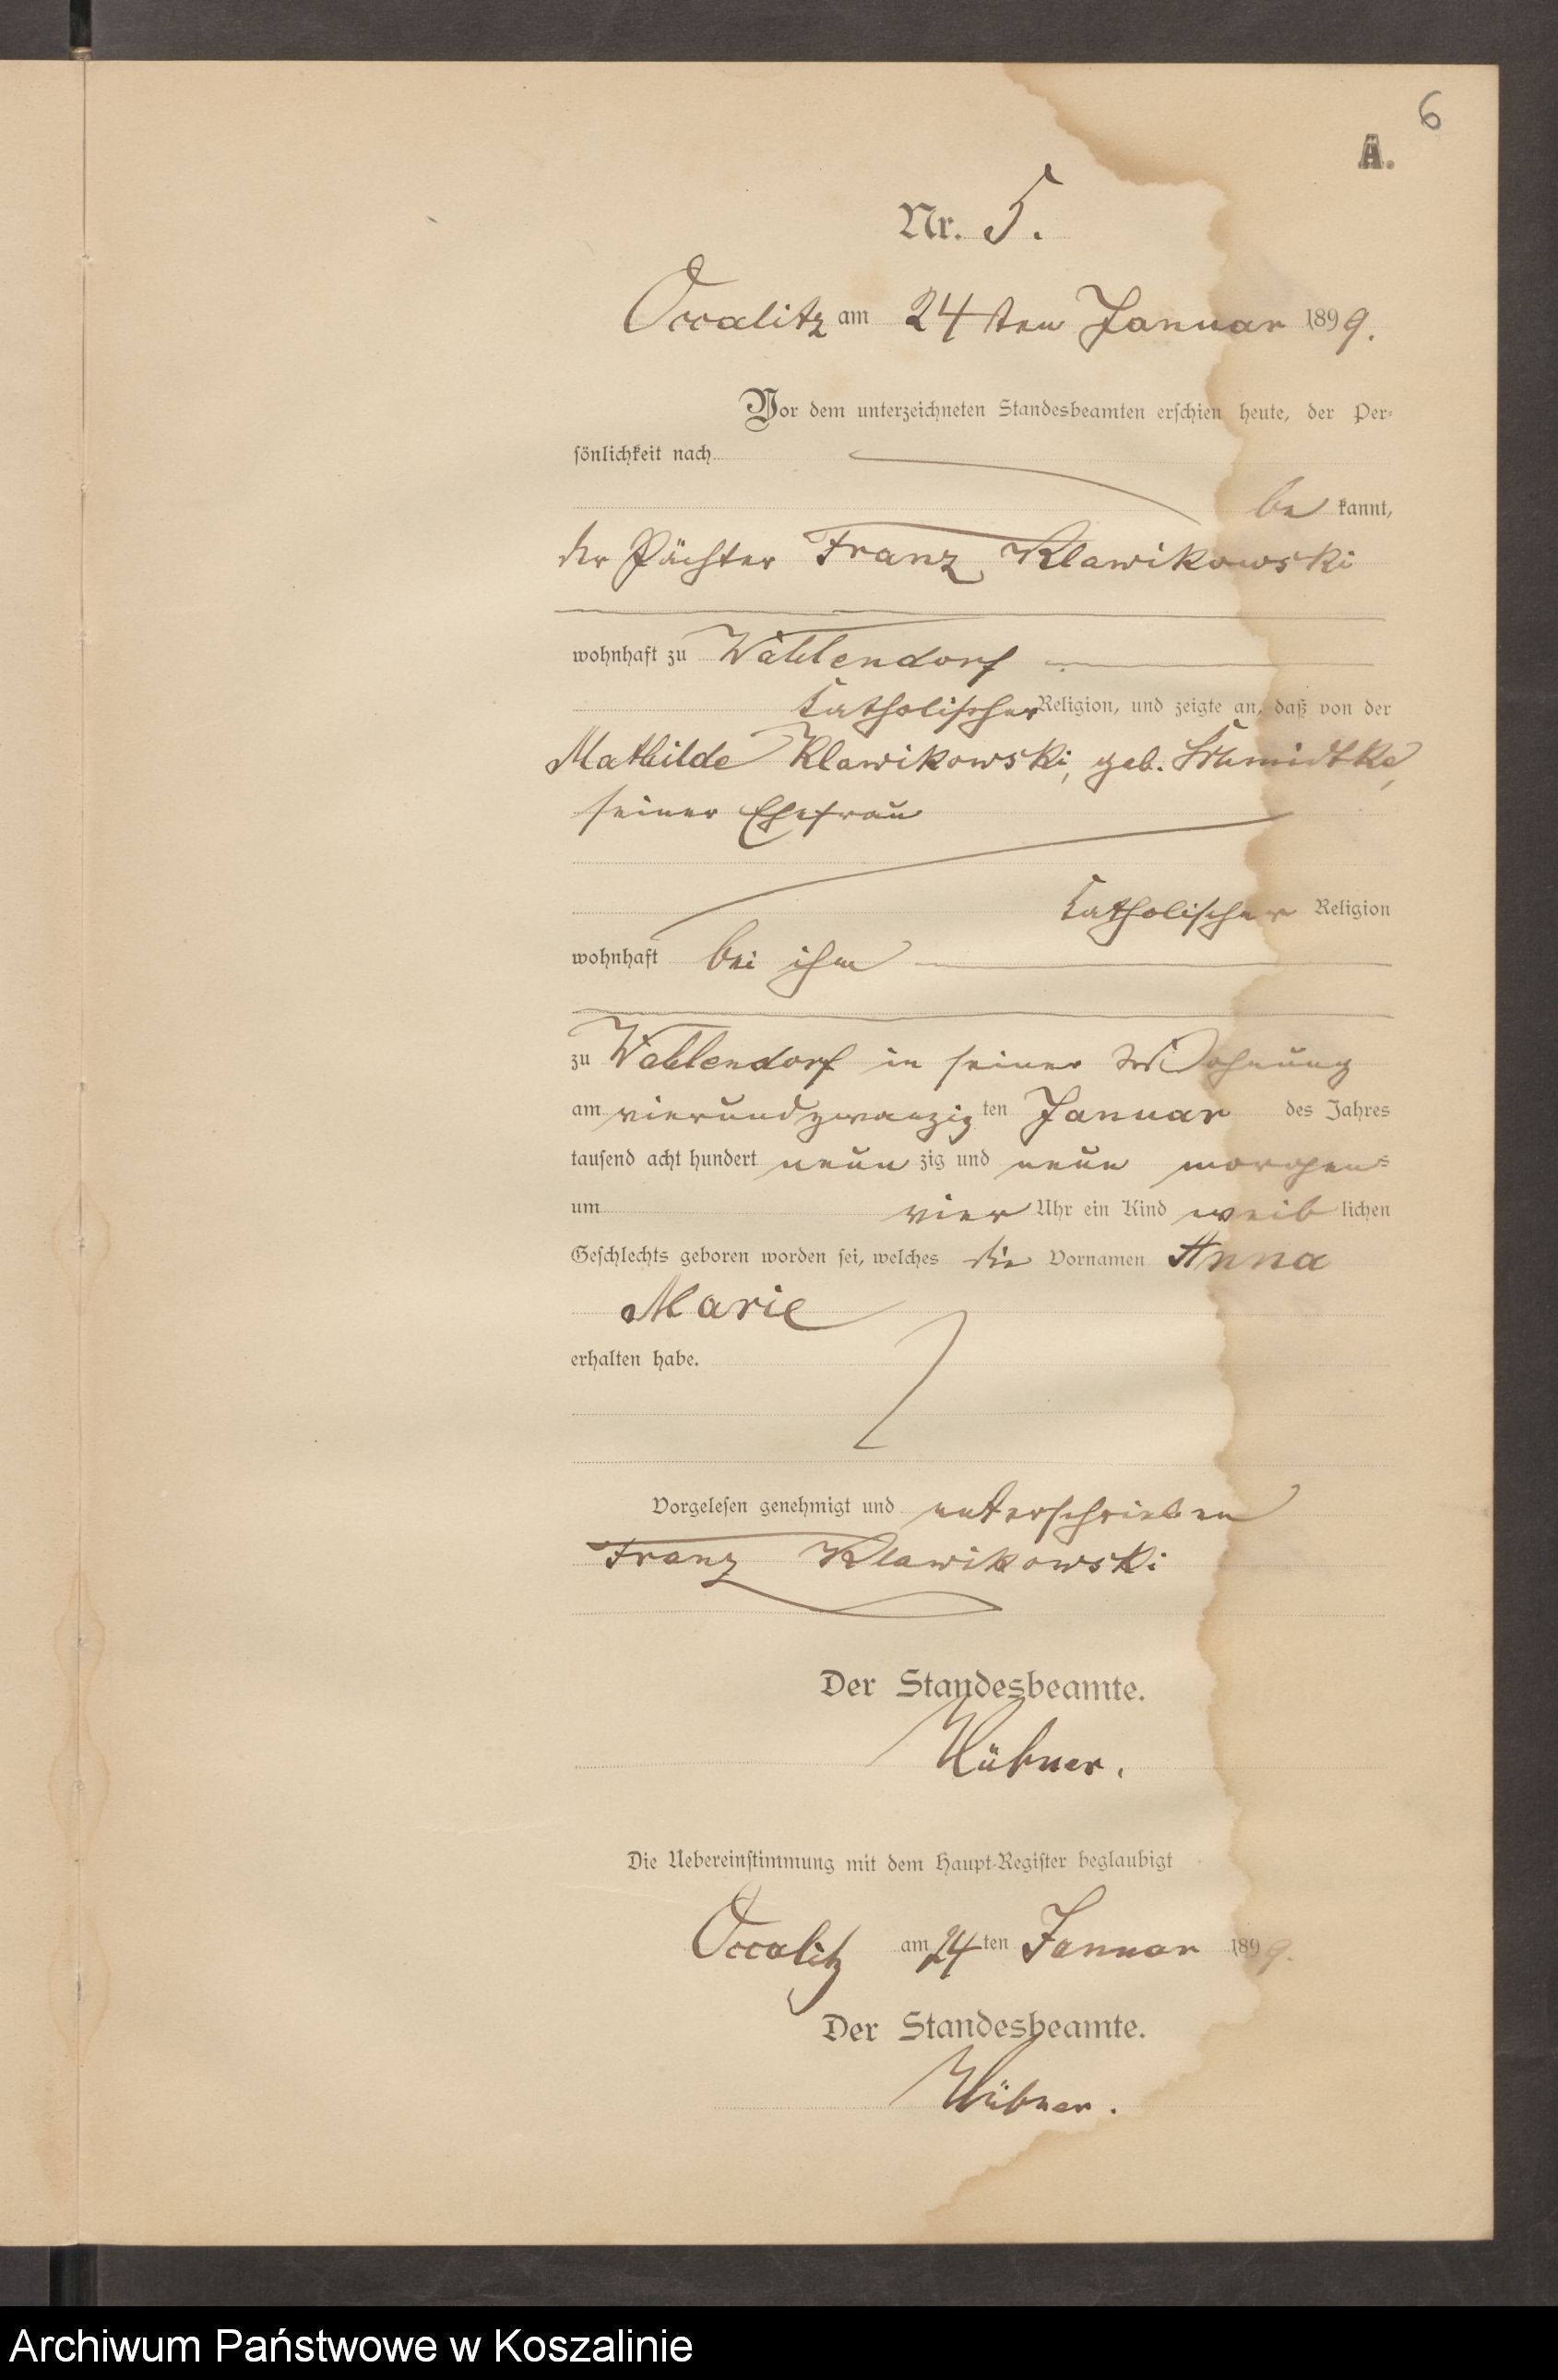 6
A.
Nr. 5.
Occalitz am 24ten Januar 1899.
Vor dem unterzeichneten Standesbeamten erschien heute, der Per-
sönlichkeit nach
be kannt,
der Pächter Franz Klawikowski
wohnhaft zu Wahlendorf
katholischer Religion, und zeigte an, daß von der
Mathilde Klawikowski, geb. Schmidtke,
seiner Ehefrau
katholischer Religion
wohnhaft bei ihm
zu Wahlendorf in seiner Wohnung
am vierundzwanzig ten Januar des Jahres
tausend acht hundert neun zig und neun morgens
um vier Uhr ein Kind weib lichen
Geschlechts geboren worden sei, welches die Vornamen Anna
Marie
erhalten habe.
Vorgelesen genehmigt und unterschrieben
Franz Klawikowski
Der Standesbeamte.
Hübner.
Die Uebereinstimmung mit dem Haupt-Register beglaubigt
Occalitz am 24ten Januar 1899.
Der Standesbeamte.
Hübner.
Archiwum Państwowe w Koszalinie